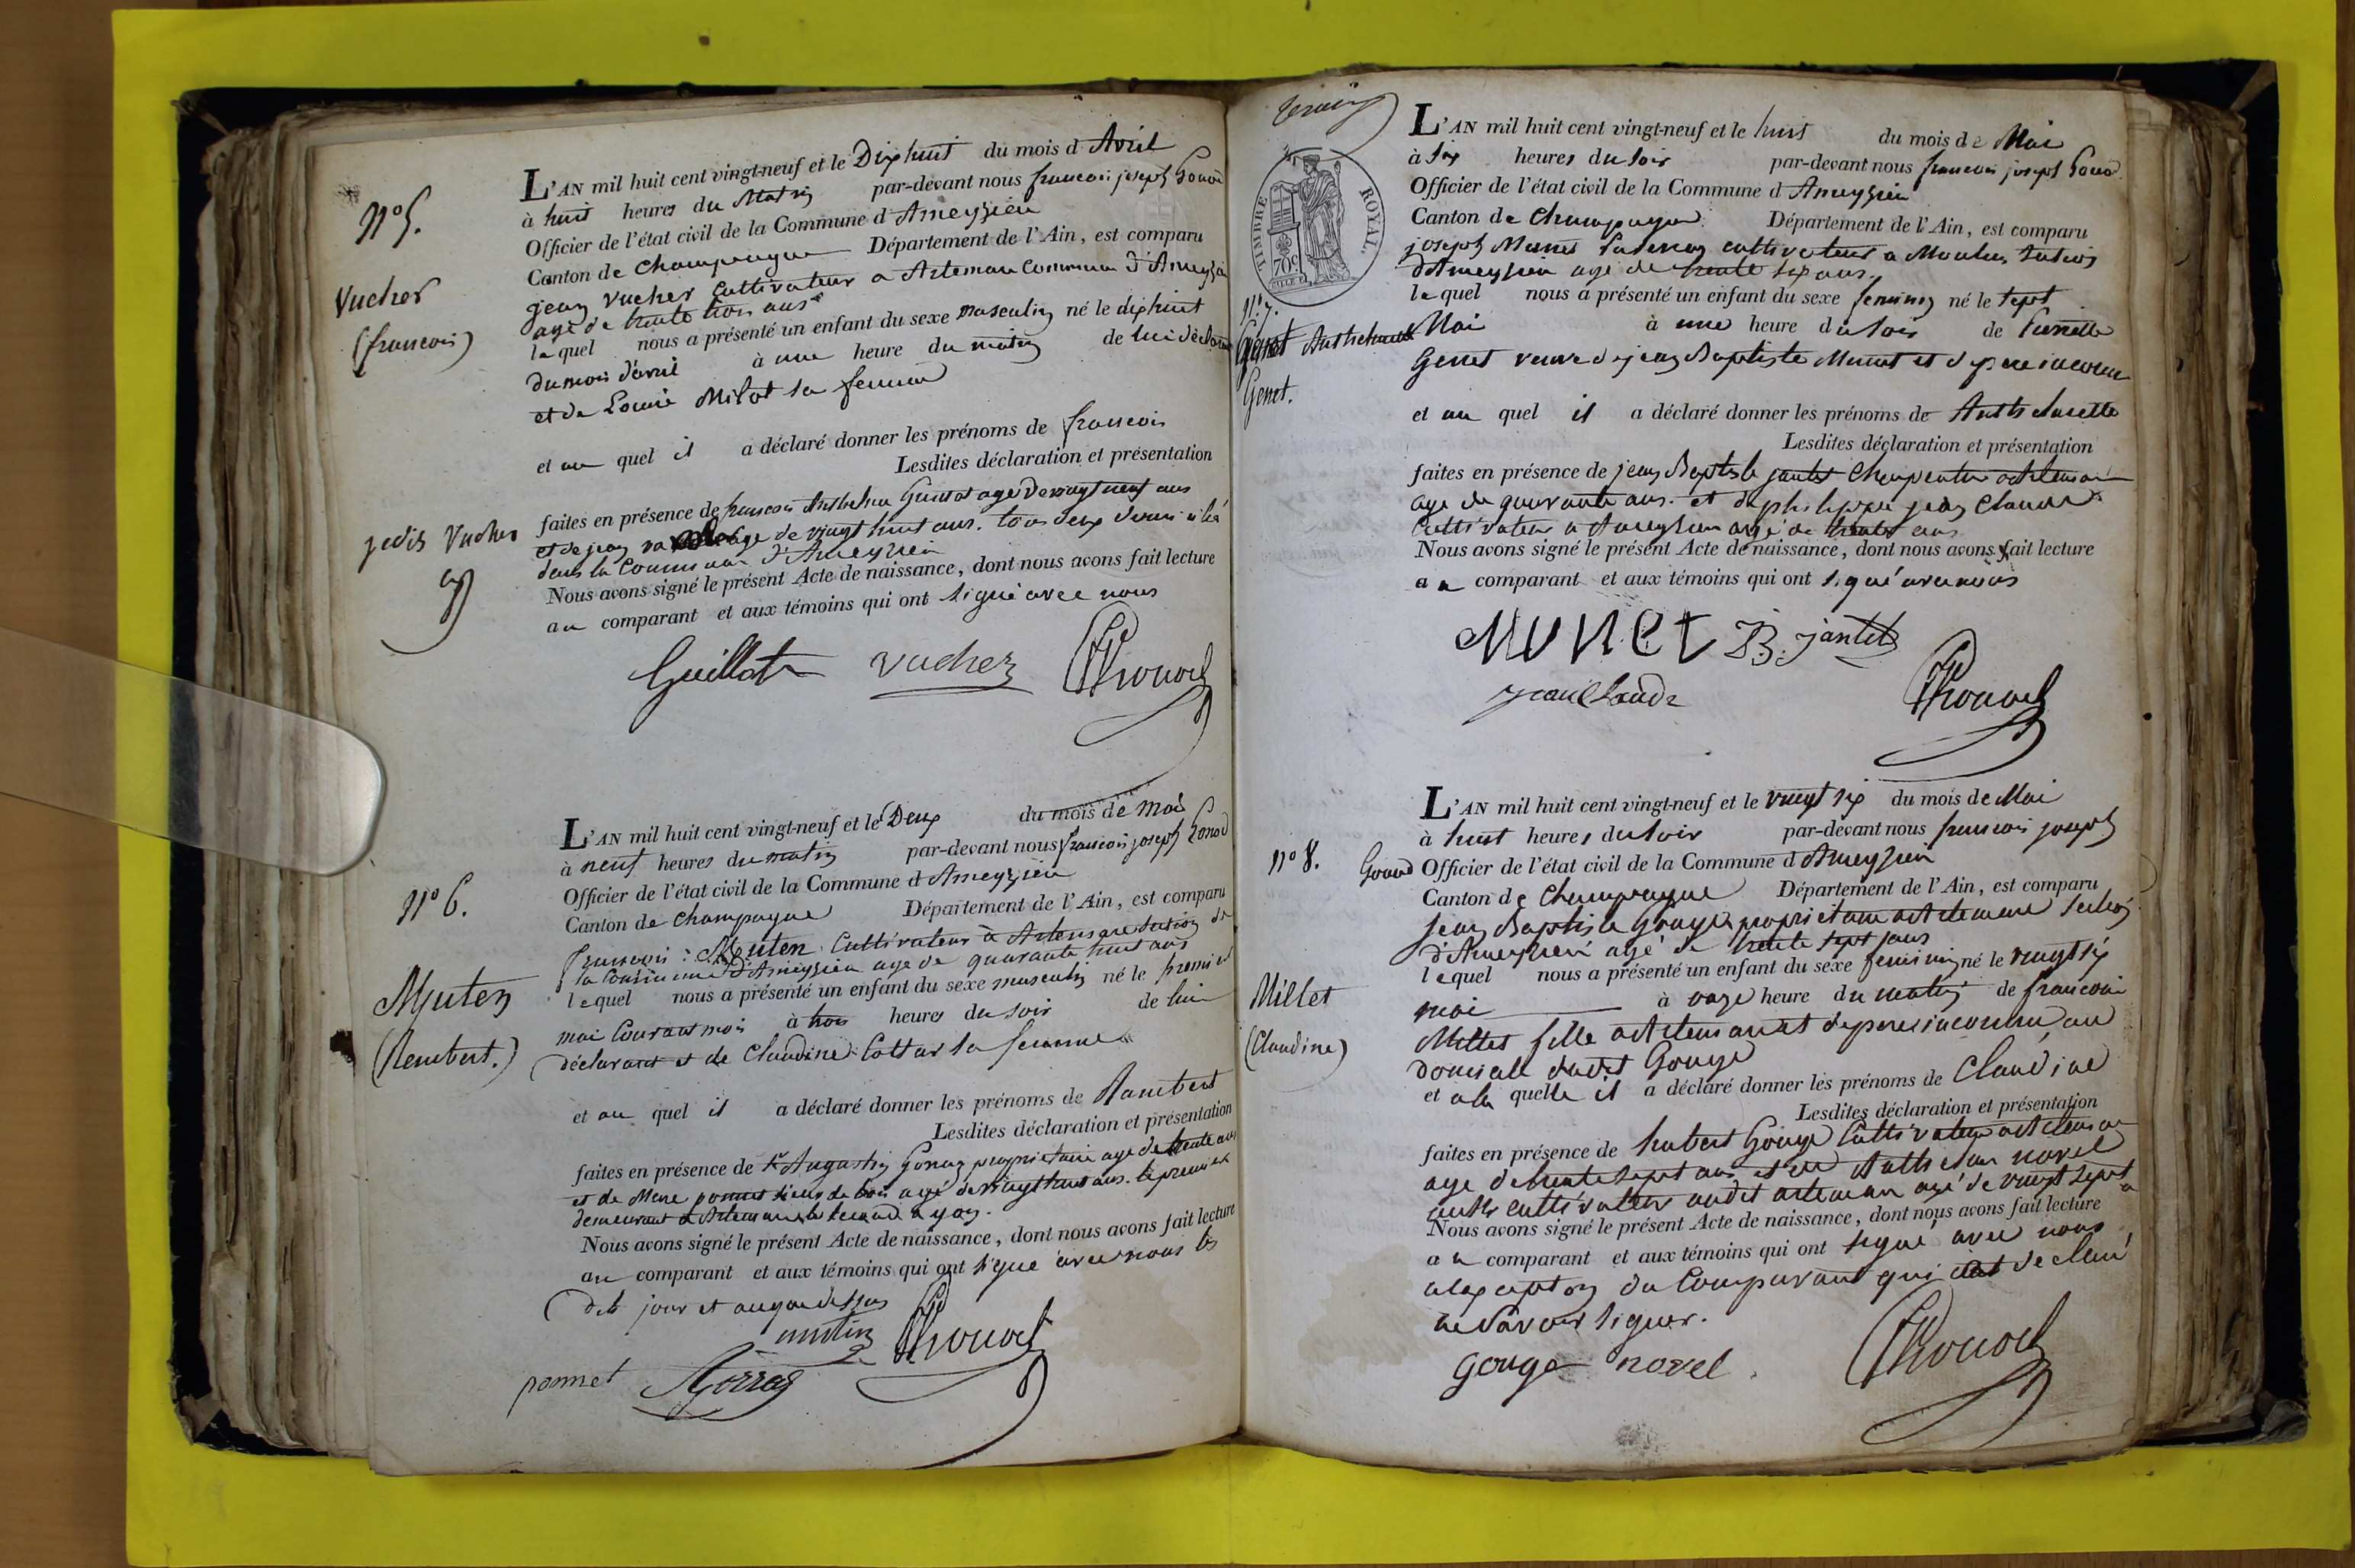 N° 5.
Vucher
(francois)
jedis Vucher
L'AN mil huit cent vingt-neuf et le Dix huit du mois d Avril
à huit heures du Matin par-devant nous francois joseph Gonod
Officier de l'état civil de la Commune d'Ameyzieu
Canton de Champagne Département de l'Ain, est comparu
jean Vucher Cultivateur a Artemare Commune d'Ameyzieu
agé de trente trois ans
lequel nous a présenté un enfant du sexe masculin né le dix huit
du mois d'avril à une heure du matin de lui déclarant
et de Louise Milot sa femme
et au quel il a déclaré donner les prénoms de francois
Lesdites déclaration et présentation
faites en présence de francois Anthelme age de vingt neuf ans
et de jean age de vingt huit ans. tous deux
dans la Commune d'Ameyzieu
Nous avons signé le présent Acte de naissance, dont nous avons fait lecture
au comparant et aux témoins qui ont signé avec nous
Guillot Vucher Gonod
N° 6.
Mutin
(Rembert.)
L'AN mil huit cent vingt-neuf et le Deux du mois de mai
à neuf heures du matin par-devant nous francois joseph Gonod
Officier de l'état civil de la Commune d'Ameyzieu
Canton de Champagne Département de l'Ain, est comparu
francois Mutin Cultivateur à Artemare section de
la Commune d'Ameyzieu age de quarante huit ans
lequel nous a présenté un enfant du sexe masculin né le premier
mai Courant mois à trois heures du soir de lui
déclarant et de Claudine Cottar sa femme
et au quel il a déclaré donner les prénoms de Rambert
Lesdites déclaration et présentation
faites en présence de Sr Augustin propriétaire age de trente ans
et de Mare ponnet sieur de bois agé de vingt huit ans. le premier
demeurant a Artemare le second a yon.
Nous avons signé le présent Acte de naissance, dont nous avons fait lecture
au comparant et aux témoins qui ont signé avec nous les
dits jour et an que dessus
mutin Gonod
ponnet
TIMBRE ROYAL
70c
N° 7.
Genet Anthelmette
Genet.
L'AN mil huit cent vingt-neuf et le huit du mois de Mai
à six heures du soir par-devant nous francois joseph Gonod
Officier de l'état civil de la Commune d'Ameyzieu
Canton de Champagne Département de l'Ain, est comparu
joseph Munet cultivateur a Moulin section
d'Ameyzieu agé de trente six ans.
lequel nous a présenté un enfant du sexe feminin né le sept
Mai à une heure du soir de
Genet veuve de jean Baptiste Munet et de pere inconnu
et au quel il a déclaré donner les prénoms de
Lesdites déclaration et présentation
faites en présence de jean Baptiste jantet Charpentier a Artemare
age de quarante ans. et de philippe jean Claude
Cultivateur a Ameyzieu agé de trente ans
Nous avons signé le présent Acte de naissance, dont nous avons fait lecture
au comparant et aux témoins qui ont signé avec nous
MUNET B. jantet
jean Claude Gonod
N° 8.
Millet
(Claudine)
L'AN mil huit cent vingt-neuf et le vingt six du mois de Mai
à huit heures du soir par-devant nous francois joseph
Gonod Officier de l'état civil de la Commune d'Ameyzieu
Canton de Champagne Département de l'Ain, est comparu
Jean Baptiste Gouge proprietaire a Artemare section
d'Ameyzieu agé de trente sept ans
lequel nous a présenté un enfant du sexe feminin né le vingt six
mai à onze heure du matin de francoise
Millet fille a Artemare et de pere inconnu, au
domicile dudit Gouge
et a la quelle il a déclaré donner les prénoms de Claudine
Lesdites déclaration et présentation
faites en présence de hubert Gouge Cultivateur a Artemare
age de trente sept ans et de Anthelme novel
autre cultivateur audit artemare agé de vingt sept a
Nous avons signé le présent Acte de naissance, dont nous avons fait lecture
au comparant et aux témoins qui ont signé avec nous
a l'exception du Comparant qui a declaré
ne savoir signer.
Gouge novel Gonod